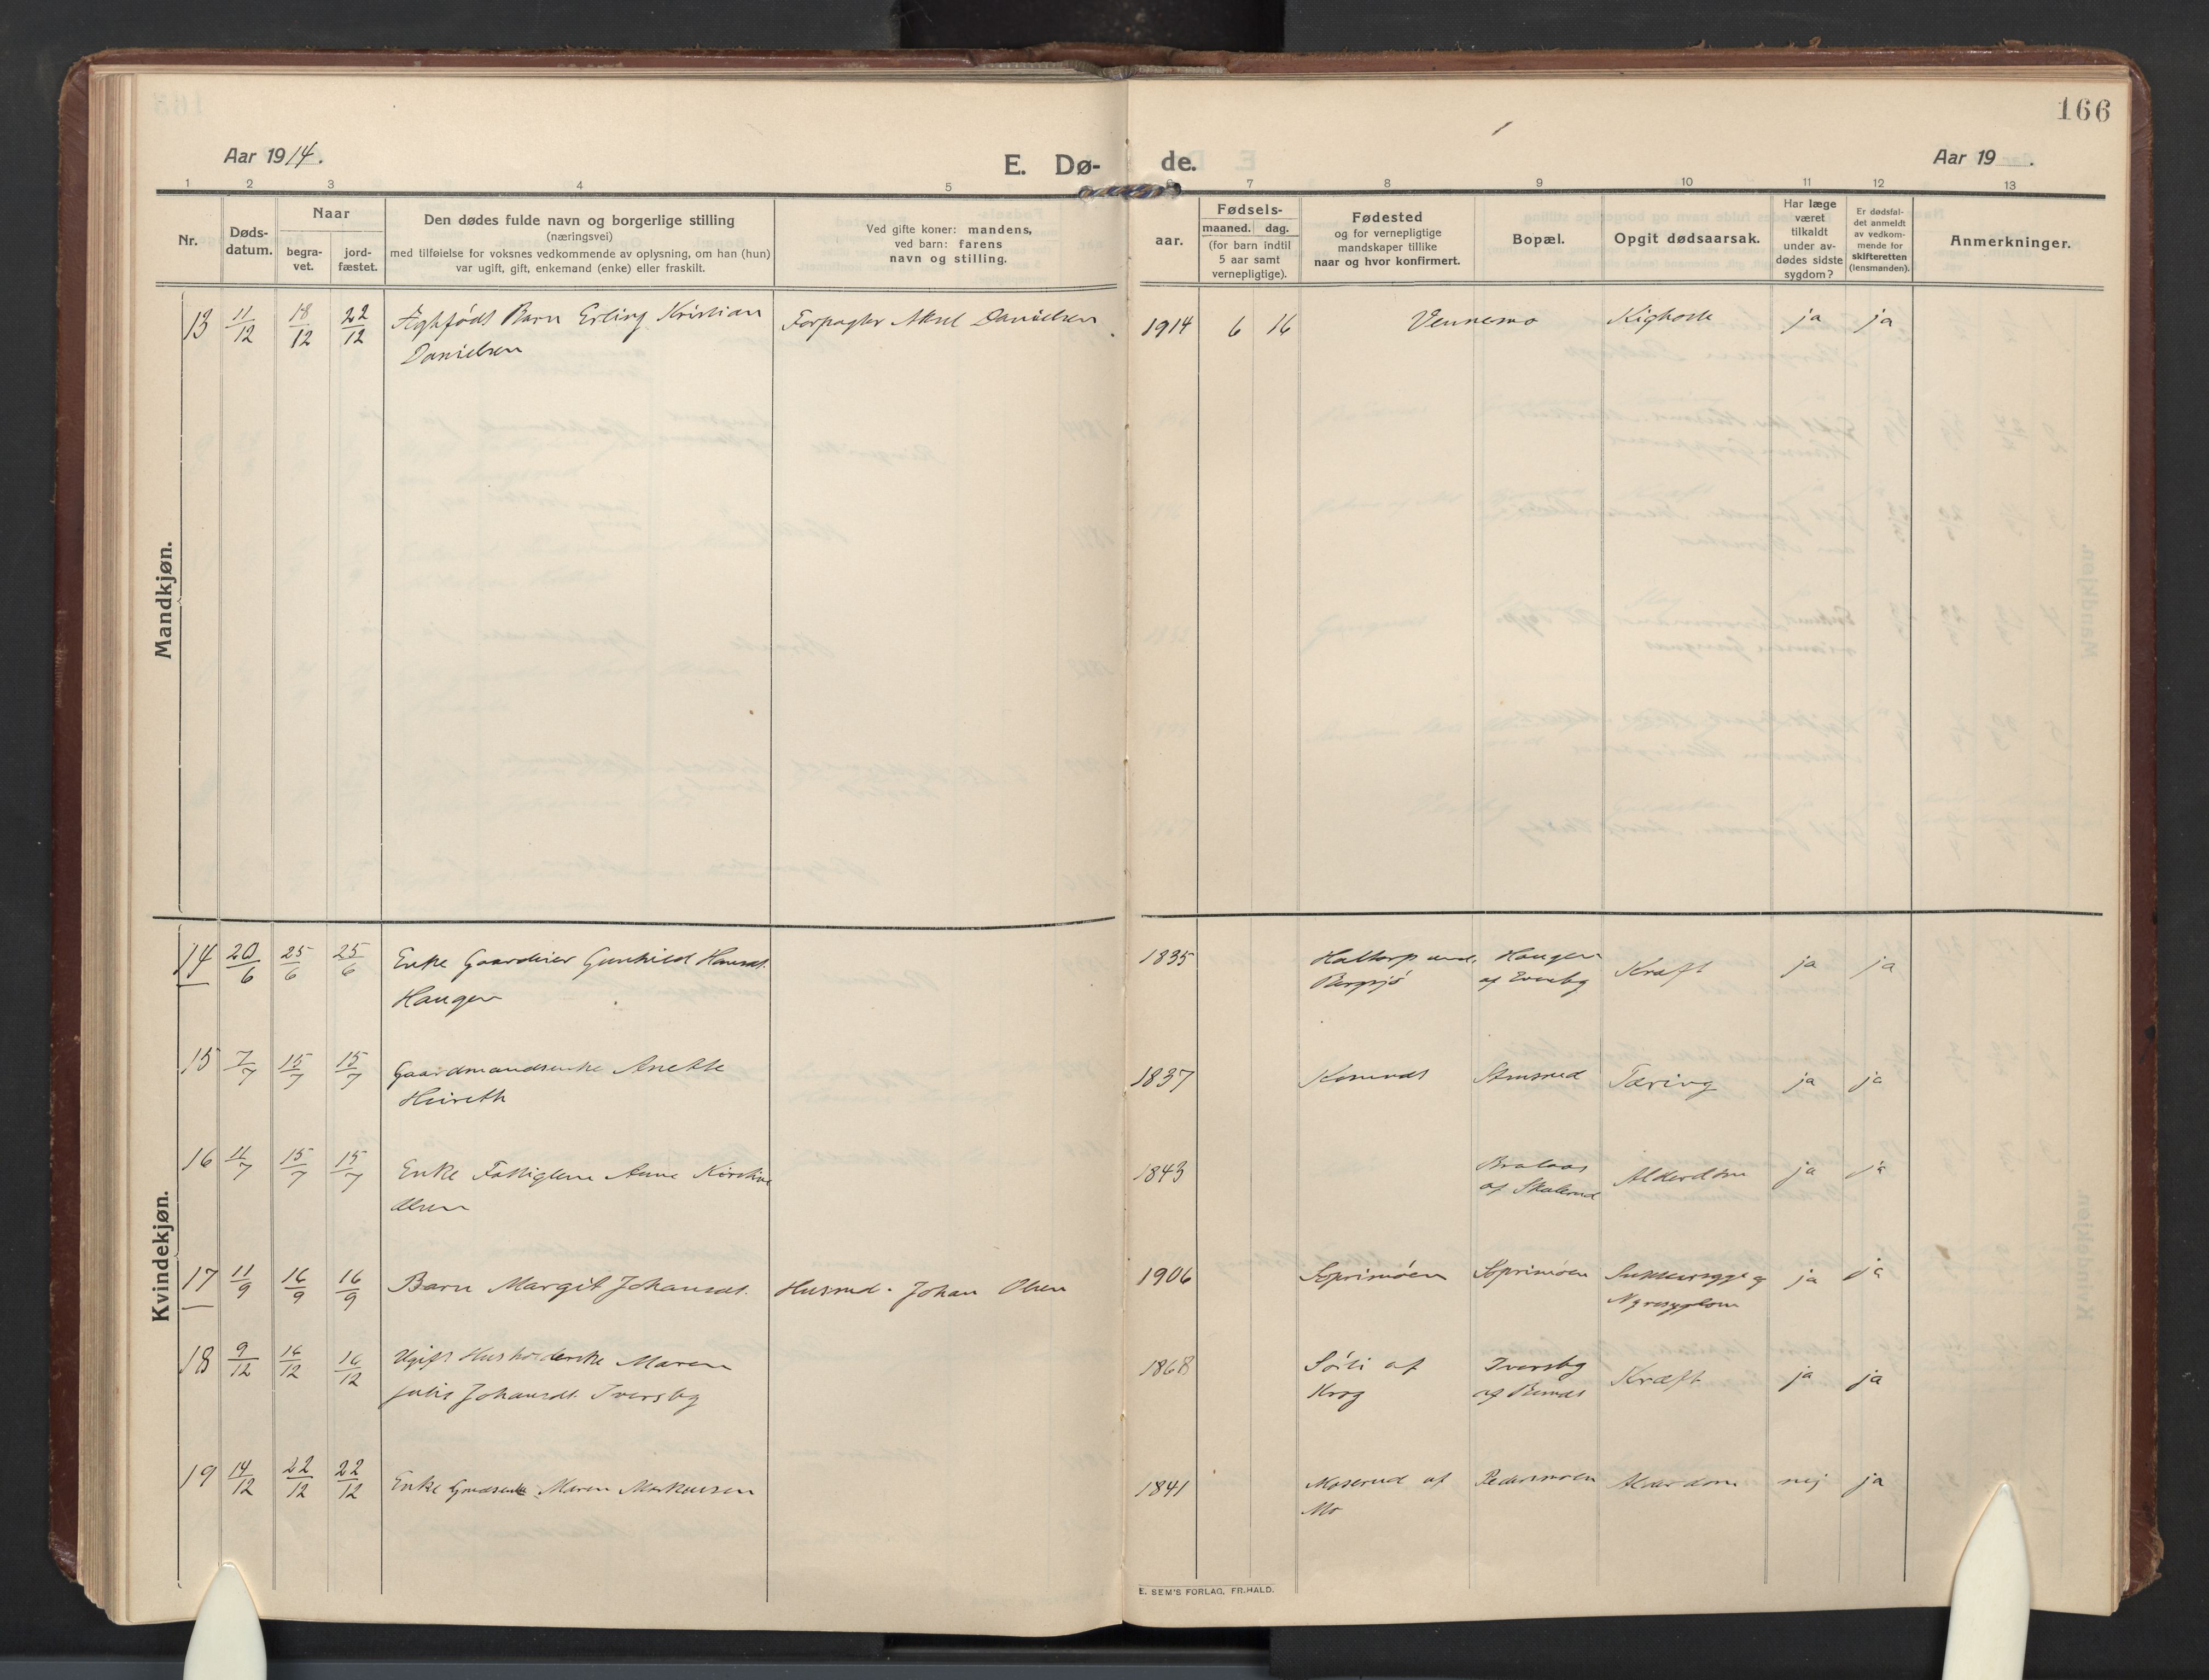 166
Aar 1914.
E. Dø- de.
Aar 19 .
1 2 3 4 5 6 7 8 9 10 11 12 13
Nr.
Døds-
datum.
Naar
begra-
vet.
jord-
fæstet.
Den dødes fulde navn og borgerlige stilling
(næringsvei)
med tilføielse for voksnes vedkommende av oplysning, om han (hun)
var ugift, gift, enkemand (enke) eller fraskilt.
Ved gifte koner: mandens,
ved barn: farens
navn og stilling.
Fødsels-
aar.
maaned. dag.
(for barn indtil
5 aar samt
vernepligtige).
Fødested
og for vernepligtige
mandskaper tillike
naar og hvor konfirmert.
Bopæl.
Opgit dødsaarsak.
Har læge
været
tilkaldt
under av-
dødes sidste
sygdom?
Er dødsfal-
det anmeldt
av vedkom-
mende for
skifteretten
(lensmanden).
Anmerkninger.
Mandkjøn.
13 11/12 18/12 22/12 Ægtefødt Barn Erling Kristian Forpagter Aksel Danielsen 1914 6 16 Vennemo Kighoste ja ja
Danielsen
Kvindekjøn.
14 20/6 25/6 25/6 Enke Gaardeier Gunhild Hansdt. 1835 Haltorp und. Haugen Kræft ja ja
Haugen Bergsjø af
15 7/7 15/7 15/7 Gaardmandsenke Anette 1837 Tæring ja ja
16 11/7 15/7 15/7 Enke Fattiglem Anne Kirstine 1843 Alderdom ja ja
Olsen af
17 11/9 16/9 16/9 Barn Margit Johansdt. Husmd. Johan Olsen 1906 Soprimoen Soprimoen Sukkersyge og ja ja
Nyresygdom
18 9/12 16/12 16/12 Ugift Husholderske Maren 1868 af Iversby Kræft ja ja
Julie Johansdt. Iversby Krog af
19 14/12 22/12 22/12 Enke Maren Markussen 1841 Moserud af Pedersmoen Alderdom nej ja
Mo
E. SEM'S FORLAG, FR.HALD.